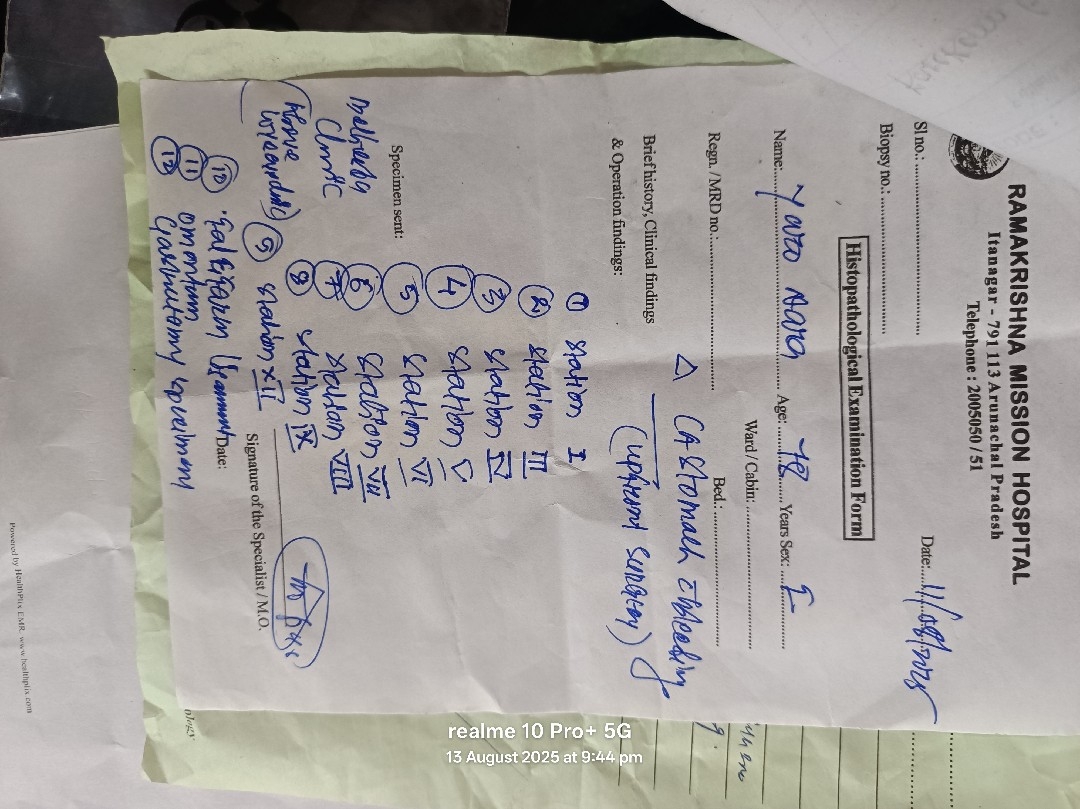 RAMAKRISHNA MISSION HOSPITAL
Itanagar - 791 113 Arunachal Pradesh
Telephone : 2005050 / 51
Sl no.:
Date: 11/08/2025
Biopsy no.:
Histopathological Examination Form
Name: Age: 78 Years Sex:
Ward / Cabin:
Regn. / MRD no : Bed.:
Brief history, Clinical findings
& Operation findings:
Δ CA Stomach bleeding
(upfront surgery)
① Station I
② Station III
③ Station IV
④ Station V
⑤ Station VI
⑥ Station VII
⑦ Station VIII
⑧ Station IX
Specimen sent:
Clinic
⑨ Station XII
⑩
⑪ omentum
⑫ Gastrectomy specimen
Date:
Signature of the Specialist / M.O.
ology
Powered by HealthPlix EMR. www.healthplix.com
realme 10 Pro+ 5G
13 August 2025 at 9:44 pm